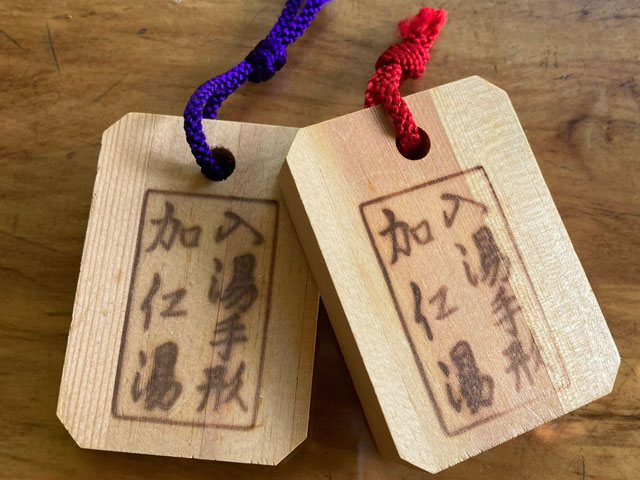 入湯手形
加仁湯
入湯手形
加仁湯